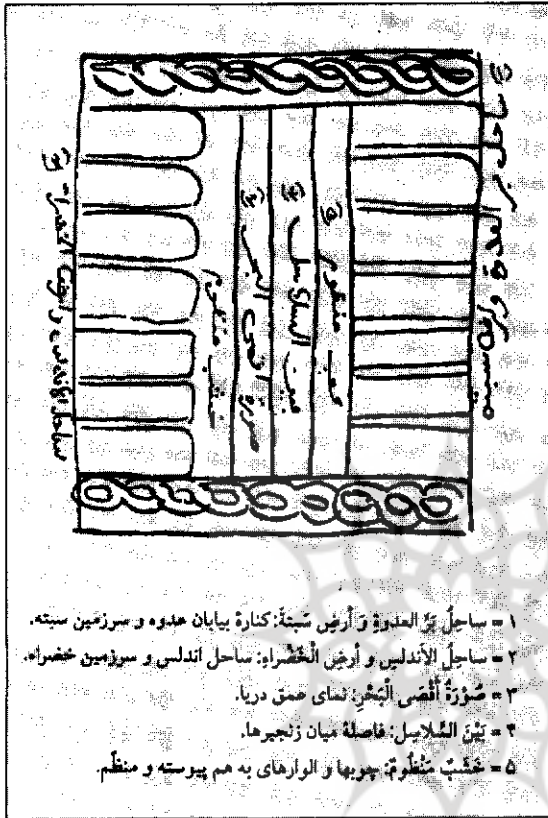 ساحل الأندلس و أرض الخضراء ②
خشب منظوم
صورة أقصى البحر ③
بين السلاسل ④
خشب منظوم ⑤
۱ = ساحِلُ بَرِّ العدوةِ وَ أرضِ سَبتةَ: کنارهٔ بیابان عدوه و سرزمین سبته.
۲ = ساحِلُ الأندلسِ و أرضِ الْخَضْراءِ: ساحل اندلس و سرزمین خضراء.
۳ = صُوْرَةُ أَقْصَی الْبَحْرِ: نمای عمق دریا.
۴ = بَیْنَ السَّلاسِل: فاصلهٔ میان زنجیرها.
۵ = خَشَبٌ مَنْظُومٌ: چوبها و الوارهای به هم پیوسته و منظّم.